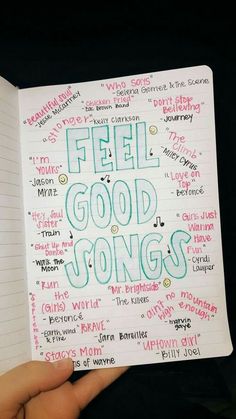 "Beautiful Soul"
- Jesse McCartney
"Who Says"
- Selena Gomez & The Scene
"Chicken Fried"
- Zac Brown Band
"Don't Stop
Believing"
- Journey
"Stronger"
- Kelly Clarkson
FEEL
GOOD
SONGS
"The
Climb"
- Miley Cyrus
"I'm
Yours"
- Jason
Mraz
"Love on
Top"
- Beyoncé
"Hey, Soul
Sister"
- Train
"Girls Just
Wanna
Have
Fun"
- Cyndi
Lauper
"Shut Up And
Dance"
- Walk The
Moon
"Run
the
(Girls)
World"
- Beyoncé
"Mr. Brightside"
- The Killers
"September"
- Earth, Wind
& Fire
"ain't no mountain
high enough"
- marvin
gaye
"BRAVE"
- Sara Bareilles
"Stacy's Mom"
of wayne
"UPtown girl"
- Billy Joel